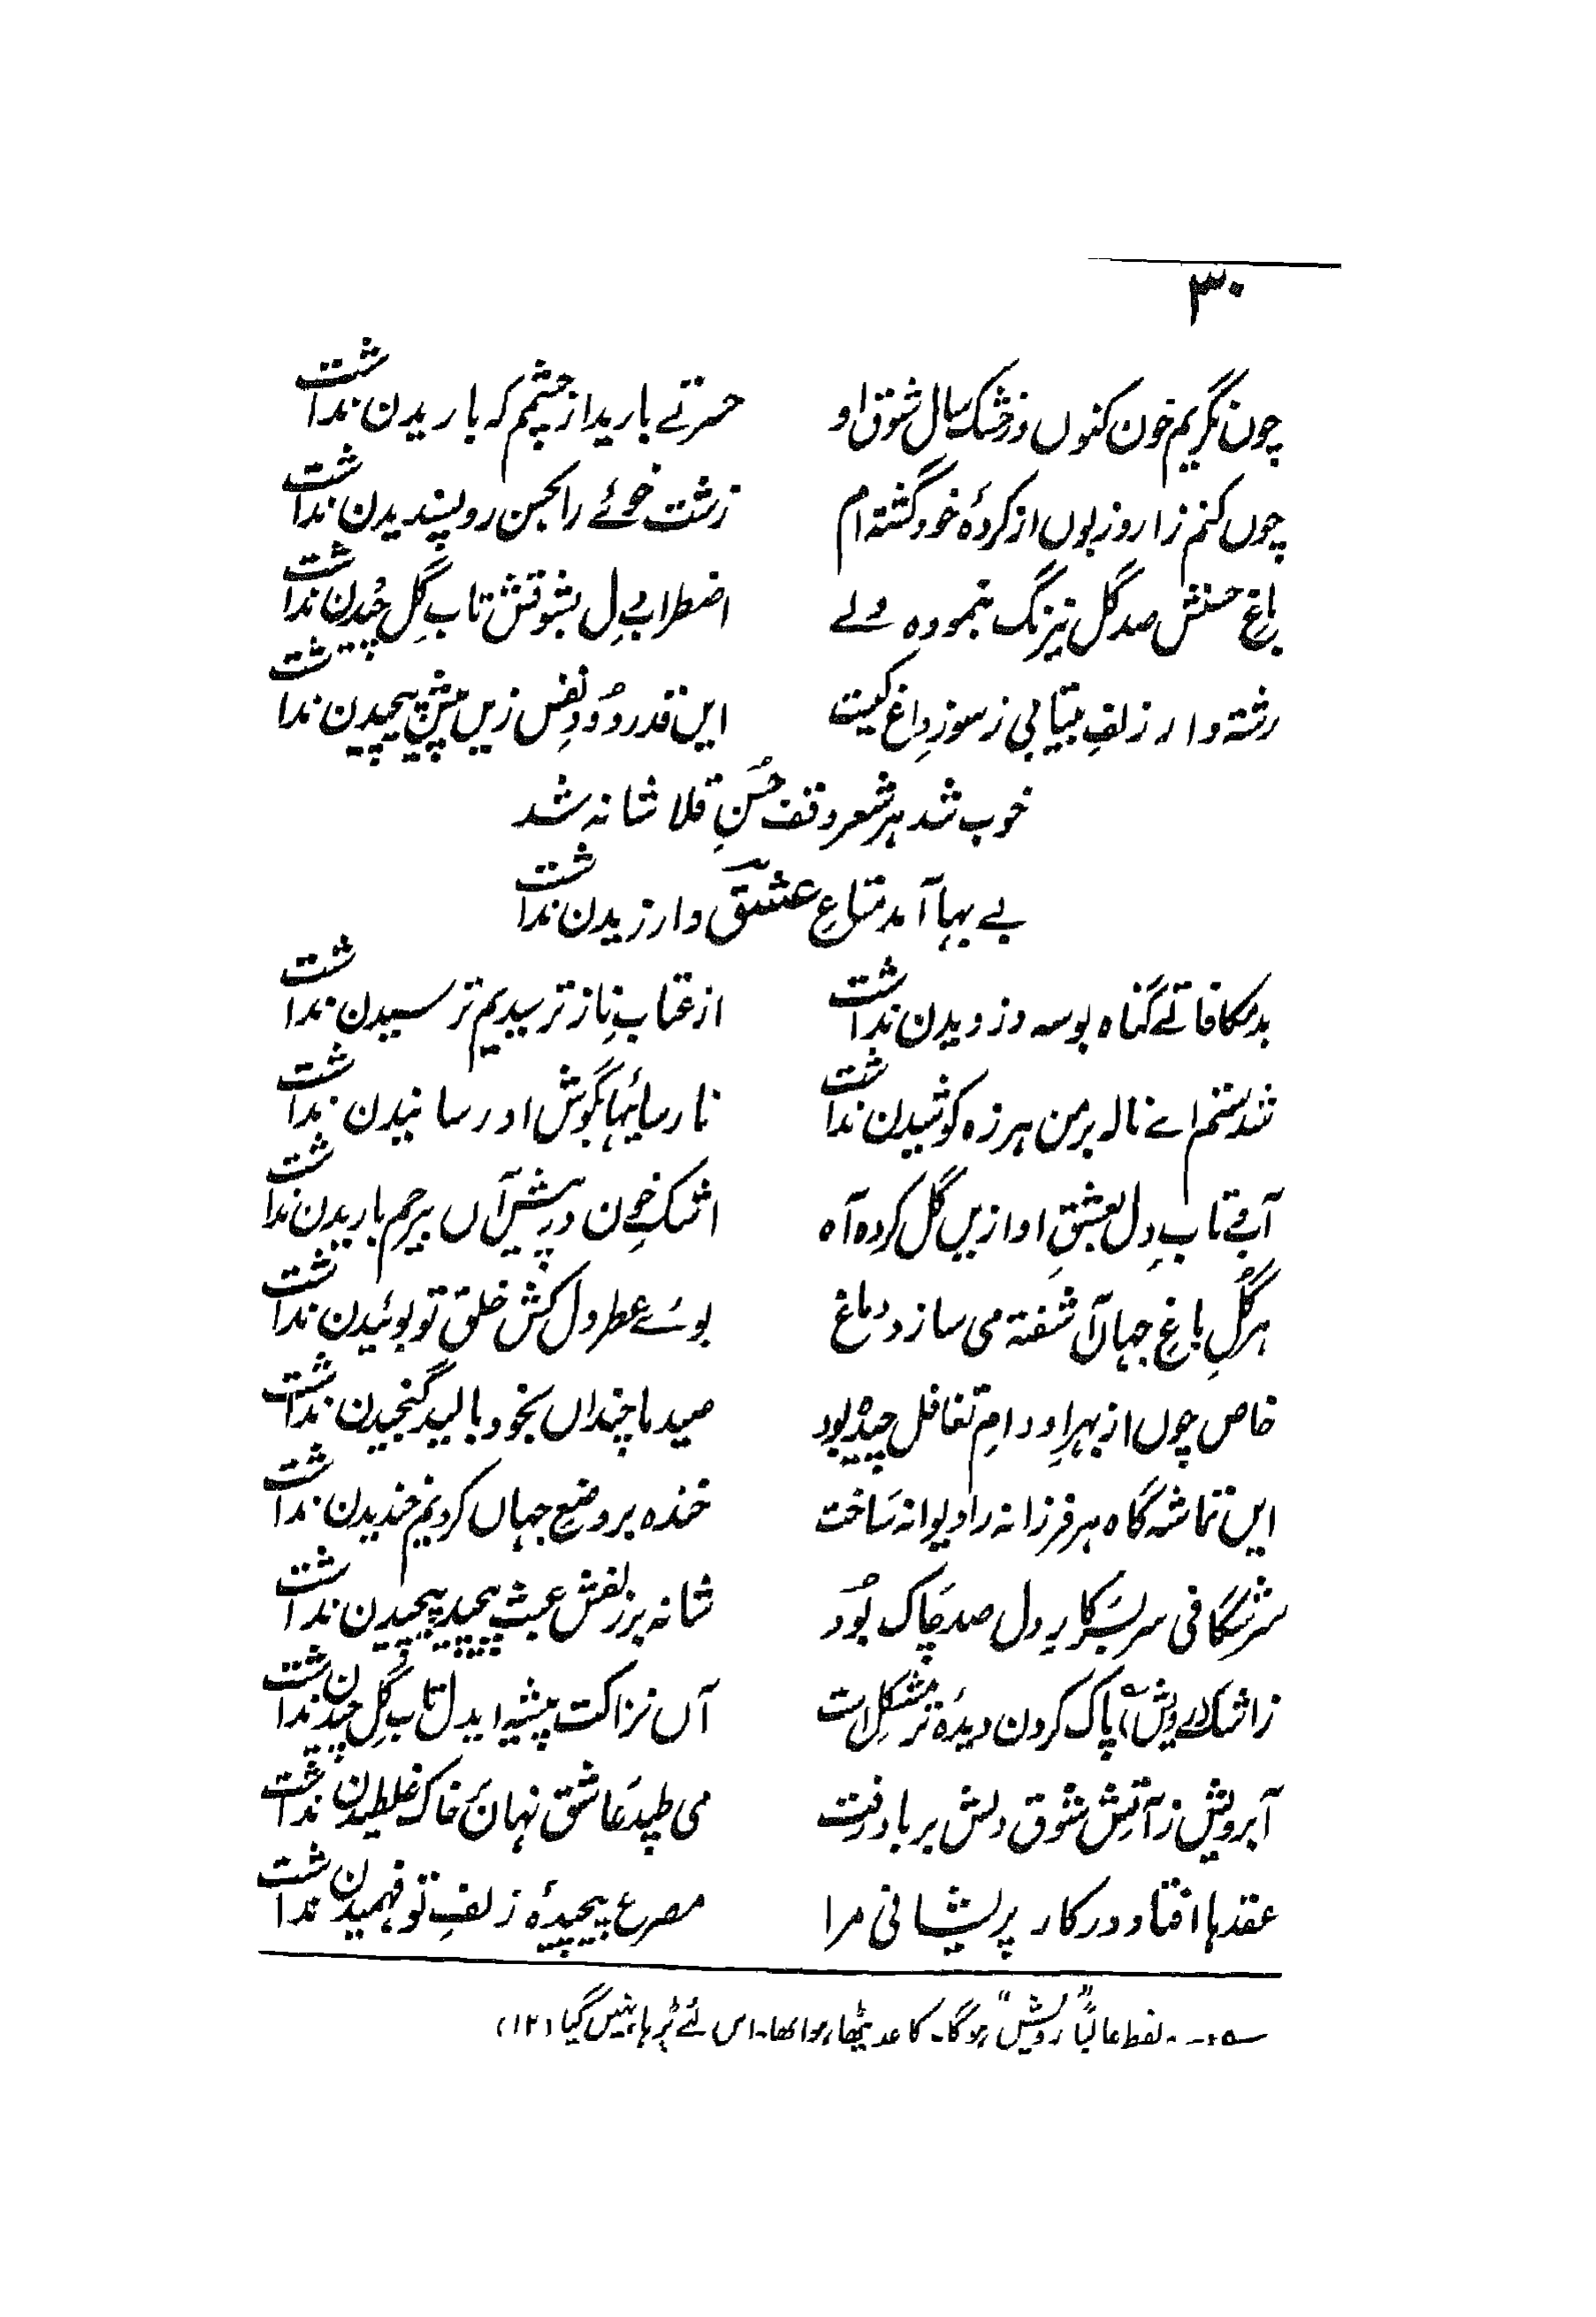 ۳۰
چون نگریم خون کنوں در خشک سال شوق او حسرتے بارید از چشمم کہ باریدن نداشت
چوں کنم زار و زبوں از کردۂ خود گشتہ ام زشت خوئے را بحسن رو پسندیدن نداشت
باغِ حسنش صد گل نیرنگ بنمودہ ولے اضطرابِ دل بشوقش تابِ گل چیدن نداشت
رشتہ وار زلفِ بیتابی ز سوزِ داغ کیست ایں قدر دُودِ نفس زیں پیش پیچیدن نداشت
خوب شد ہر شعر وقف حُسنِ قلاشانہ شد
بے بہا آمد متاعِ عشقؔ و ارزیدن نداشت
بد مکافاتے گناہ بوسہ دزدیدن نداشت از عتابِ ناز ترسیدیم ترسیدن نداشت
شد ستم اے نالہ بر من ہرزہ کوشیدن نداشت نارسائیہا بگوش او رسانیدن نداشت
آب و تابِ دل بعشقِ او ازیں گل کردہ آہ اشکِ خون در پیشِ آں بیرحم باریدن نداشت
ہر گُلِ باغِ جہاں آشفتہ می سازد دماغ بوئے عطر دل کش خلق تو بوئیدن نداشت
خاص چوں از بہرِ او دامِ تغافل چیدہ بود صید ما چنداں بخود بالید گنجیدن نداشت
ایں تماشہ گاہ ہر فرزانہ را دیوانہ ساخت خندہ بر وضعِ جہاں کردیم خندیدن نداشت
سرشگافی سر بسر کارِ دل صد چاک بُود شانہ بر زلفش عبث پیچید پیچیدن نداشت
ز اشکہاے رویش؎ پاک کردن دیدۂ تر مشکل است آں نزاکت پیشہ ایدل تابِ گل چیدن نداشت
آبرویش ز آتشِ شوق دلش برباد رفت می طپید عاشق نہاں خاک غلطیدن نداشت
عقدہا افتاد در کار پریشانی مرا مصرع پیچیدۂ زلفِ تو فہمیدن نداشت
؎ ۔۔ لفظ غالباً "رویش" ہوگا۔ کاغذ پھٹا ہوا تھا۔ اس لئے پڑھا نہیں گیا (۱۲)